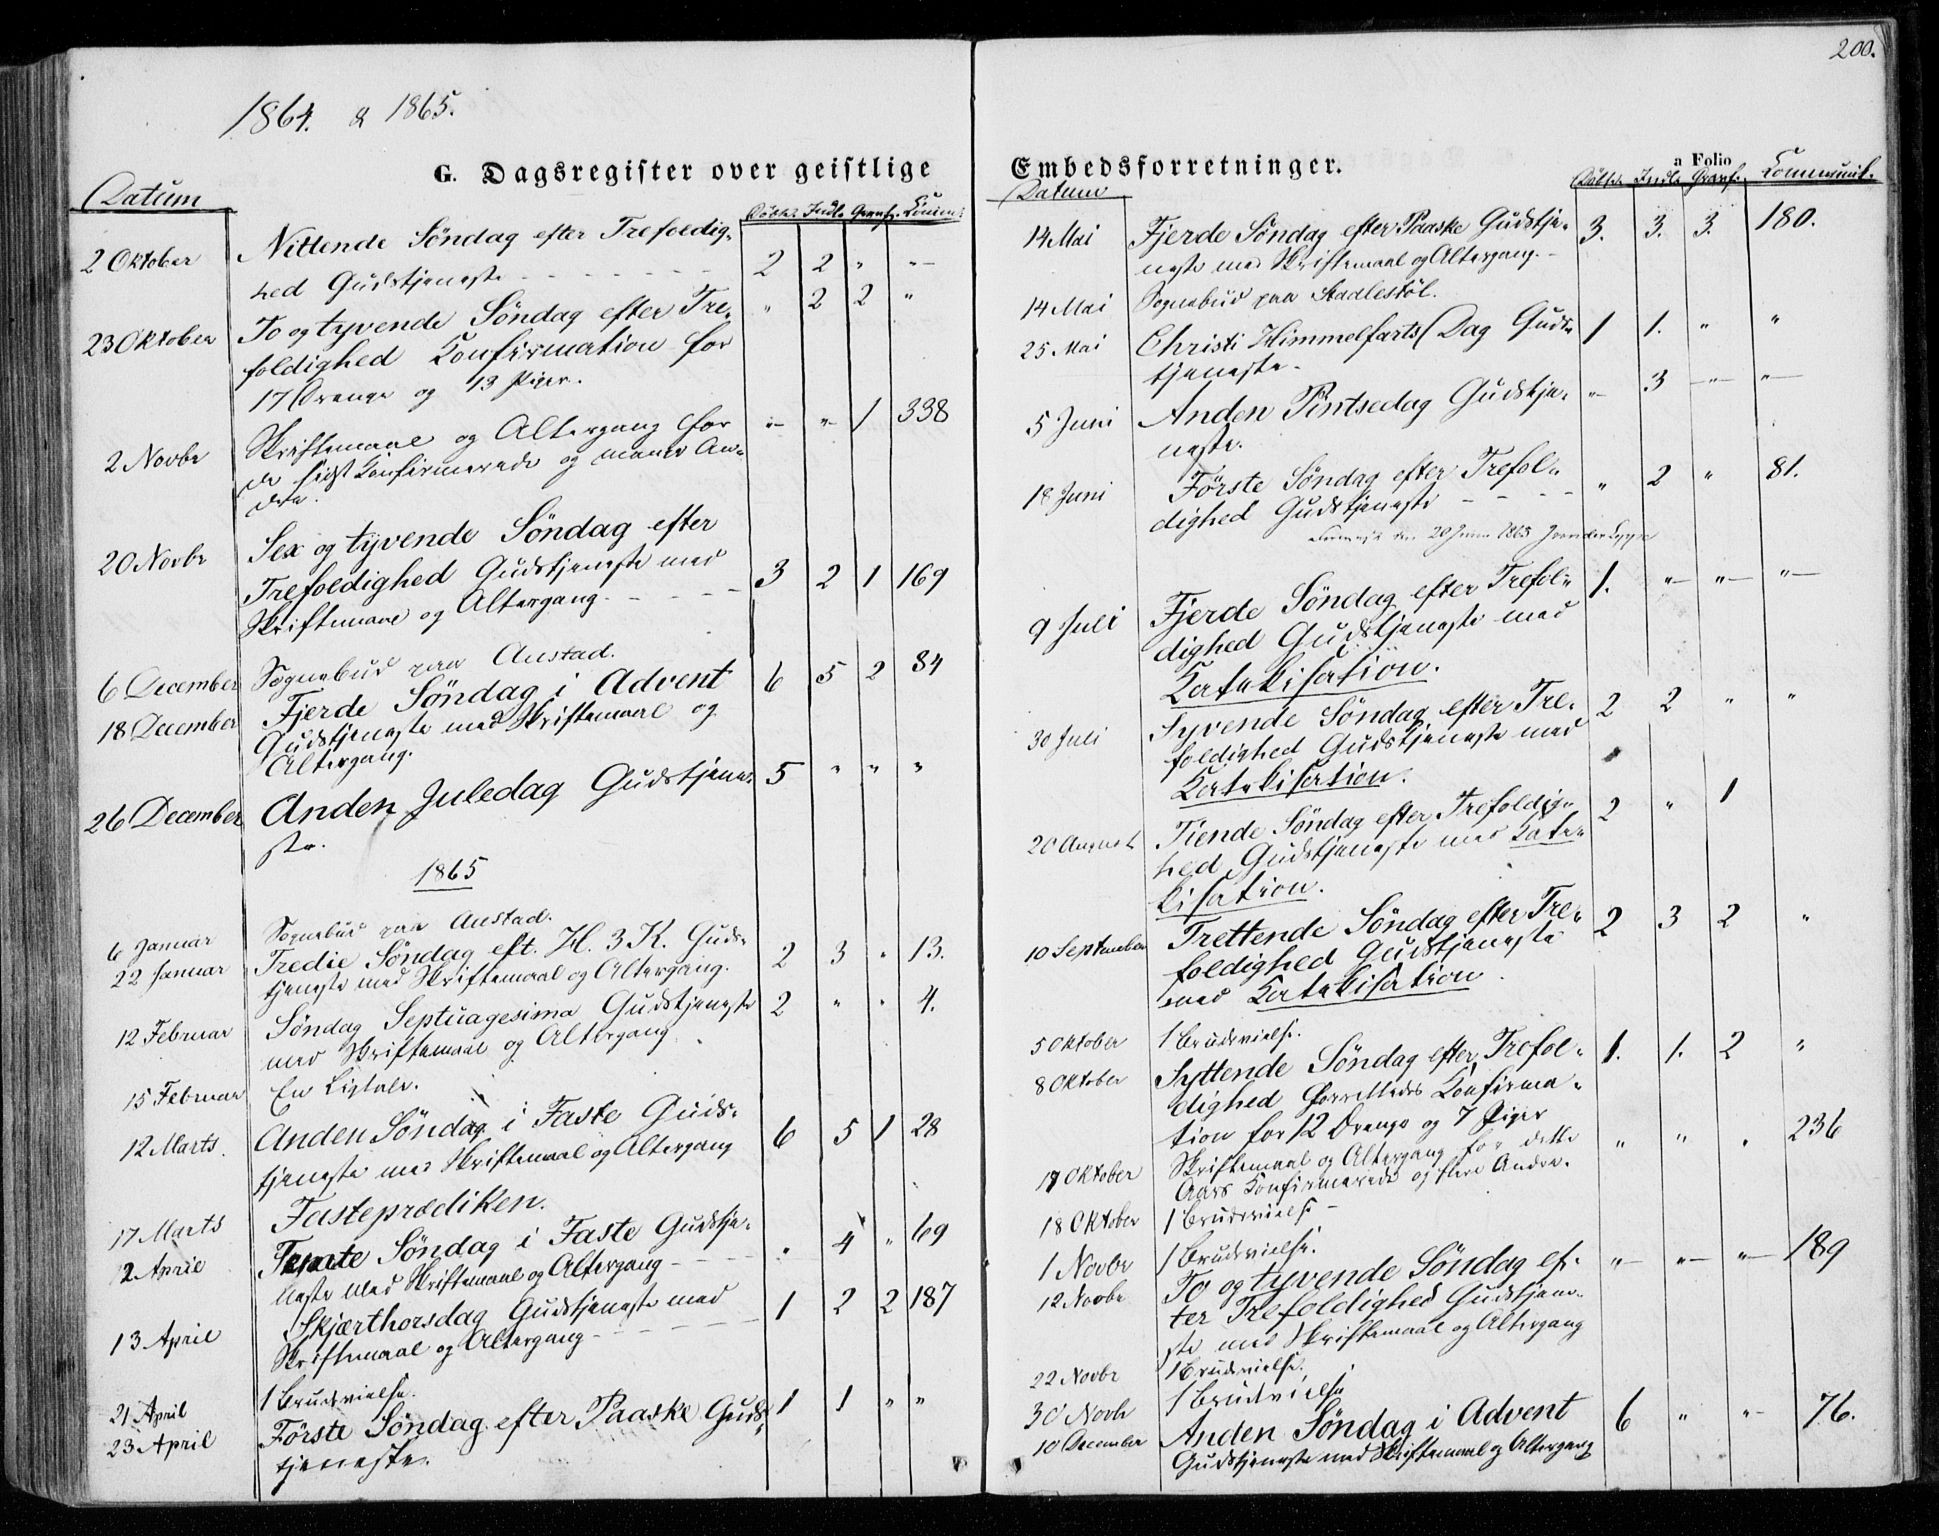 200.
1864. & 1865.
G. Dagsregister over geistlige
Datum Döbte. Indl. Grav.
2 Oktober Nittende Söndag efter Trefoldig-
hed Gudstjeneste - - - - - 2 2 " "
23 Oktober To og tyvende Söndag efter Tre- " 2 2 "
foldighed Konfirmation for
17 Drenge og 13 Piger.
2 Novbr Skriftemaal og Altergang for " " 1 338
de sidst Konfirmerede og mange An-
dre.
20 Novbr Sex og tyvende Söndag efter
Trefoldighed Gudstjeneste med 3 2 1 169
Skriftemaal og Altergang. - - - -
6 December Sognebud paa Austad.
18 December Fjerde Söndag i Advent 6 5 2 84
Gudstjeneste med Skriftemaal og
Altergang.
26 December Anden Juledag Gudstjene- 5 " " "
ste.
1865
6 Januar Sognebud paa Austad.
22 Januar Tredie Söndag eft. H. 3 K. Guds- 2 3 " 13.
tjeneste med Skriftemaal og Altergang.
12 Februar Söndag Septuagesima Gudstjeneste 2 " " 4.
med Skriftemaal og Altergang.
15 Februar En Ligtale.
12 Marts. Anden Söndag i Faste Guds- 6 5 1 28
tjeneste med Skriftemaal og Altergang
17 Marts Fasteprædiken.
2 April Femte Söndag i Faste Gudstje- " 4 " 69
neste med Skriftemaal og Altergang - -
13 April Skjærthorsdag Gudstjeneste med 1 2 2 187
Skriftemaal og Altergang - - - -
21 April 1 Brudevielse.
23 April Förste Söndag efter Paaske Guds- 1 1 " "
tjeneste.
Embedsforretninger.
a Folio
Datum Döbte. Indl. Grav. Communic.
14 Mai Fjerde Söndag efter Paaske Gudstje- 3. 3. 3. 180.
neste med Skriftemaal og Altergang. -
14 Mai Sognebud paa Stadlestöl.
25 Mai Christi Himmelfarts Dag Guds- 1 1. " "
tjeneste.
5 Juni Anden Pintsedag Gudstje- " 3 " "
neste.
18 Juni Förste Söndag efter Trefol- " 2 " 81.
dighed Gudstjeneste - - - -
den 20 Juni 1865
9 Juli Fjerde Söndag efter Trefol- 1. " " "
dighed Gudstjeneste med
Katekisation.
30 Juli Syvende Söndag efter Tre- 2 2 " "
foldighed Gudstjeneste med
Katekisation.
20 August Tiende Söndag efter Trefoldig- 2 " 1
hed Gudstjeneste med Kate-
kisation.
10 September Trettende Söndag efter Tre- 2 3 2 "
foldighed Gudstjeneste
med Katekisation.
5 Oktober 1 Brudevielse.
8 Oktober Syttende Söndag efter Trefol- 1. 1. 2 "
dighed forrettedes Konfirma-
tion for 12 Drenge og 7 Piger
17 Oktober Skriftemaal og Altergang for dette " " " 236
Aars Konfirmerede og flere Andre.
18 Oktober 1 Brudevielse -
1 Novbr 1 Brudevielse.
12 Novbr To og tyvende Söndag ef- " " " 189
ter Trefoldighed Gudstjene-
ste med Skriftemaal og Altergang
22 Novbr 1 Brudevielse,
30 Novbr 1 Brudevielse
10 December Anden Söndag i Advent 6 " " 76.
Gudstjeneste med Skriftemaal og Altergang